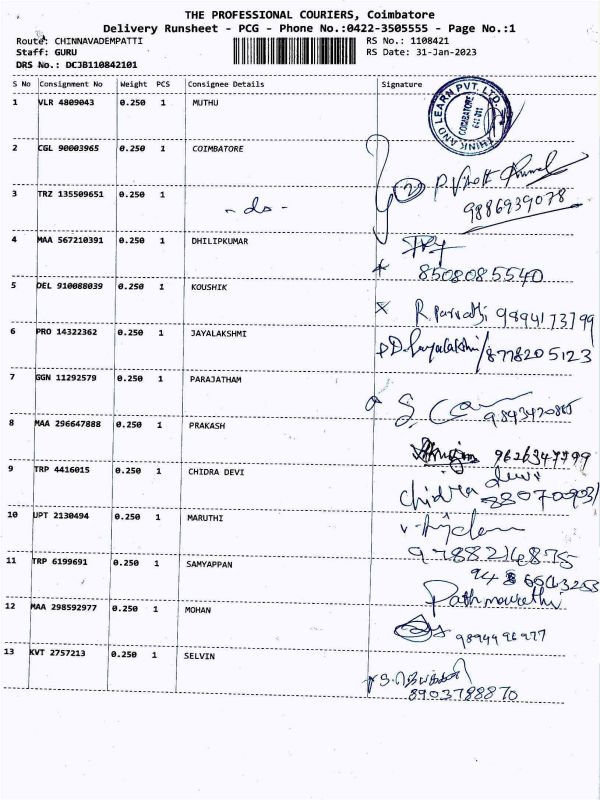 THE PROFESSIONAL COURIERS, Coimbatore
Delivery Runsheet - PCG - Phone No.:0422-3505555 - Page No.:1
Route: CHINNAVADEMPATTI RS No.: 1108421
Staff: GURU RS Date: 31-Jan-2023
DRS No.: DCJB110842101
S No Consignment No Weight PCS Consignee Details Signature
1 VLR 4809043 0.250 1 MUTHU
THINK AND LEARN PVT. LTD.
COIMBATORE
2 CGL 90003965 0.250 1 COIMBATORE
(2) P. Vinoth Kumar
9886939078
3 TRZ 135509651 0.250 1
- do -
4 MAA 567210391 0.250 1 DHILIPKUMAR
8508085540
5 DEL 910088039 0.250 1 KOUSHIK
R. Parvathi 9894173799
6 PRO 14322362 0.250 1 JAYALAKSHMI
D. Jayalakshmi/8778205123
7 GGN 11292579 0.250 1 PARAJATHAM
8 MAA 296647888 0.250 1 PRAKASH
9626347799
9 TRP 4416015 0.250 1 CHIDRA DEVI
Chidra devi
10 UPT 2130494 0.250 1 MARUTHI
9788214875
11 TRP 6199691 0.250 1 SAMYAPPAN
12 MAA 298592977 0.250 1 MOHAN
13 KVT 2757213 0.250 1 SELVIN
8903788870